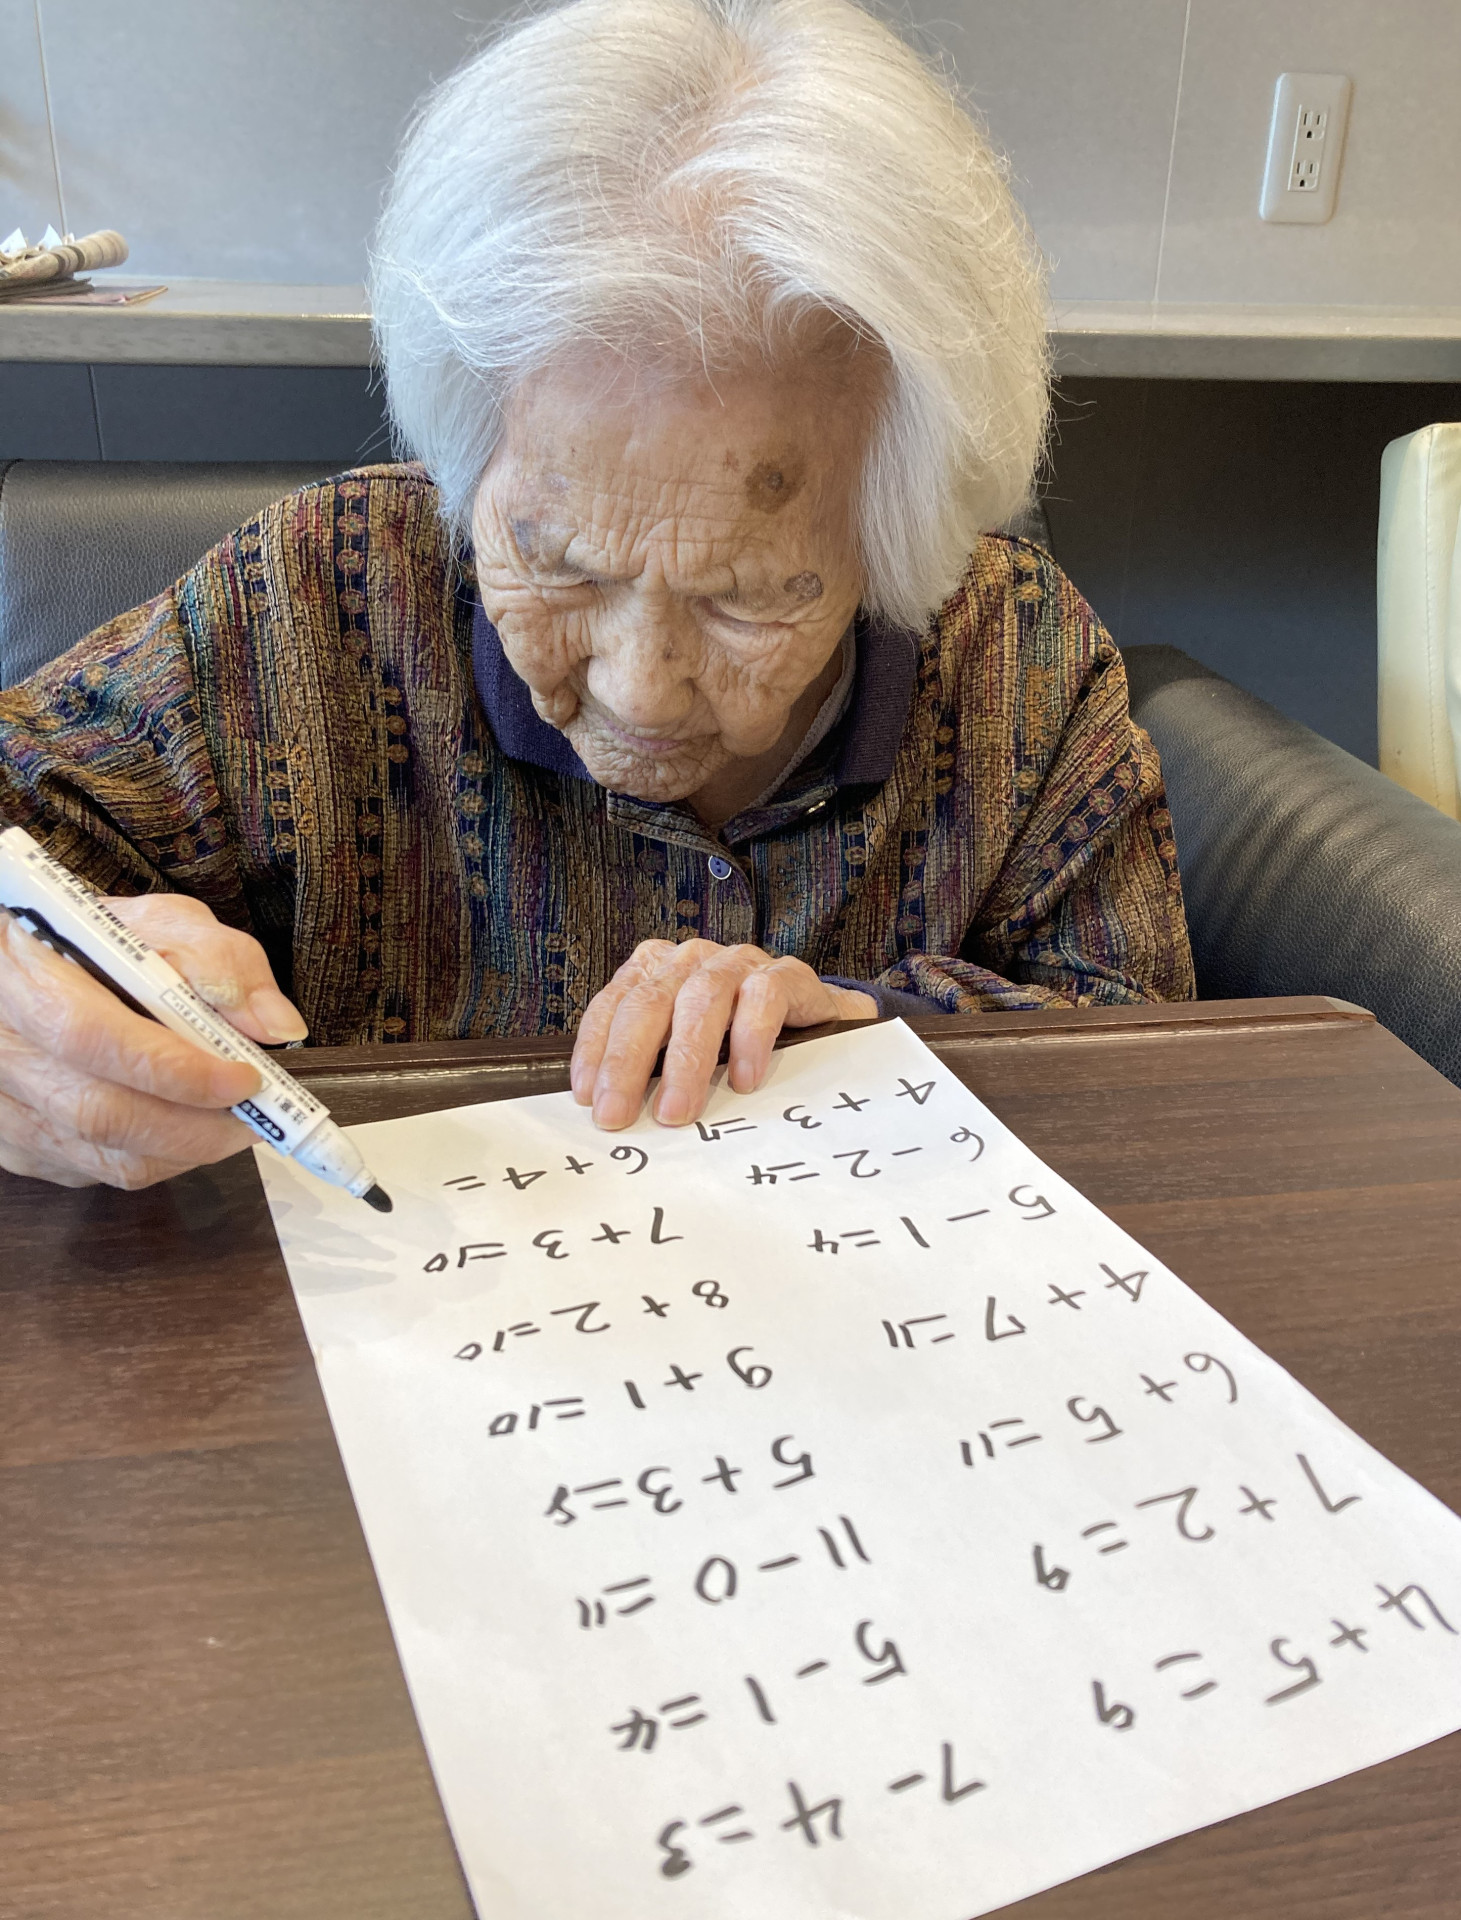 4 + 5 = 9
7 + 2 = 9
6 + 5 = 11
4 + 7 = 11
5 - 1 = 4
6 - 2 = 4
4 + 3 = 7
7 - 4 = 3
5 - 1 = 4
11 - 0 = 11
5 + 3 = 8
9 + 1 = 10
8 + 2 = 10
7 + 3 = 10
6 + 4 =